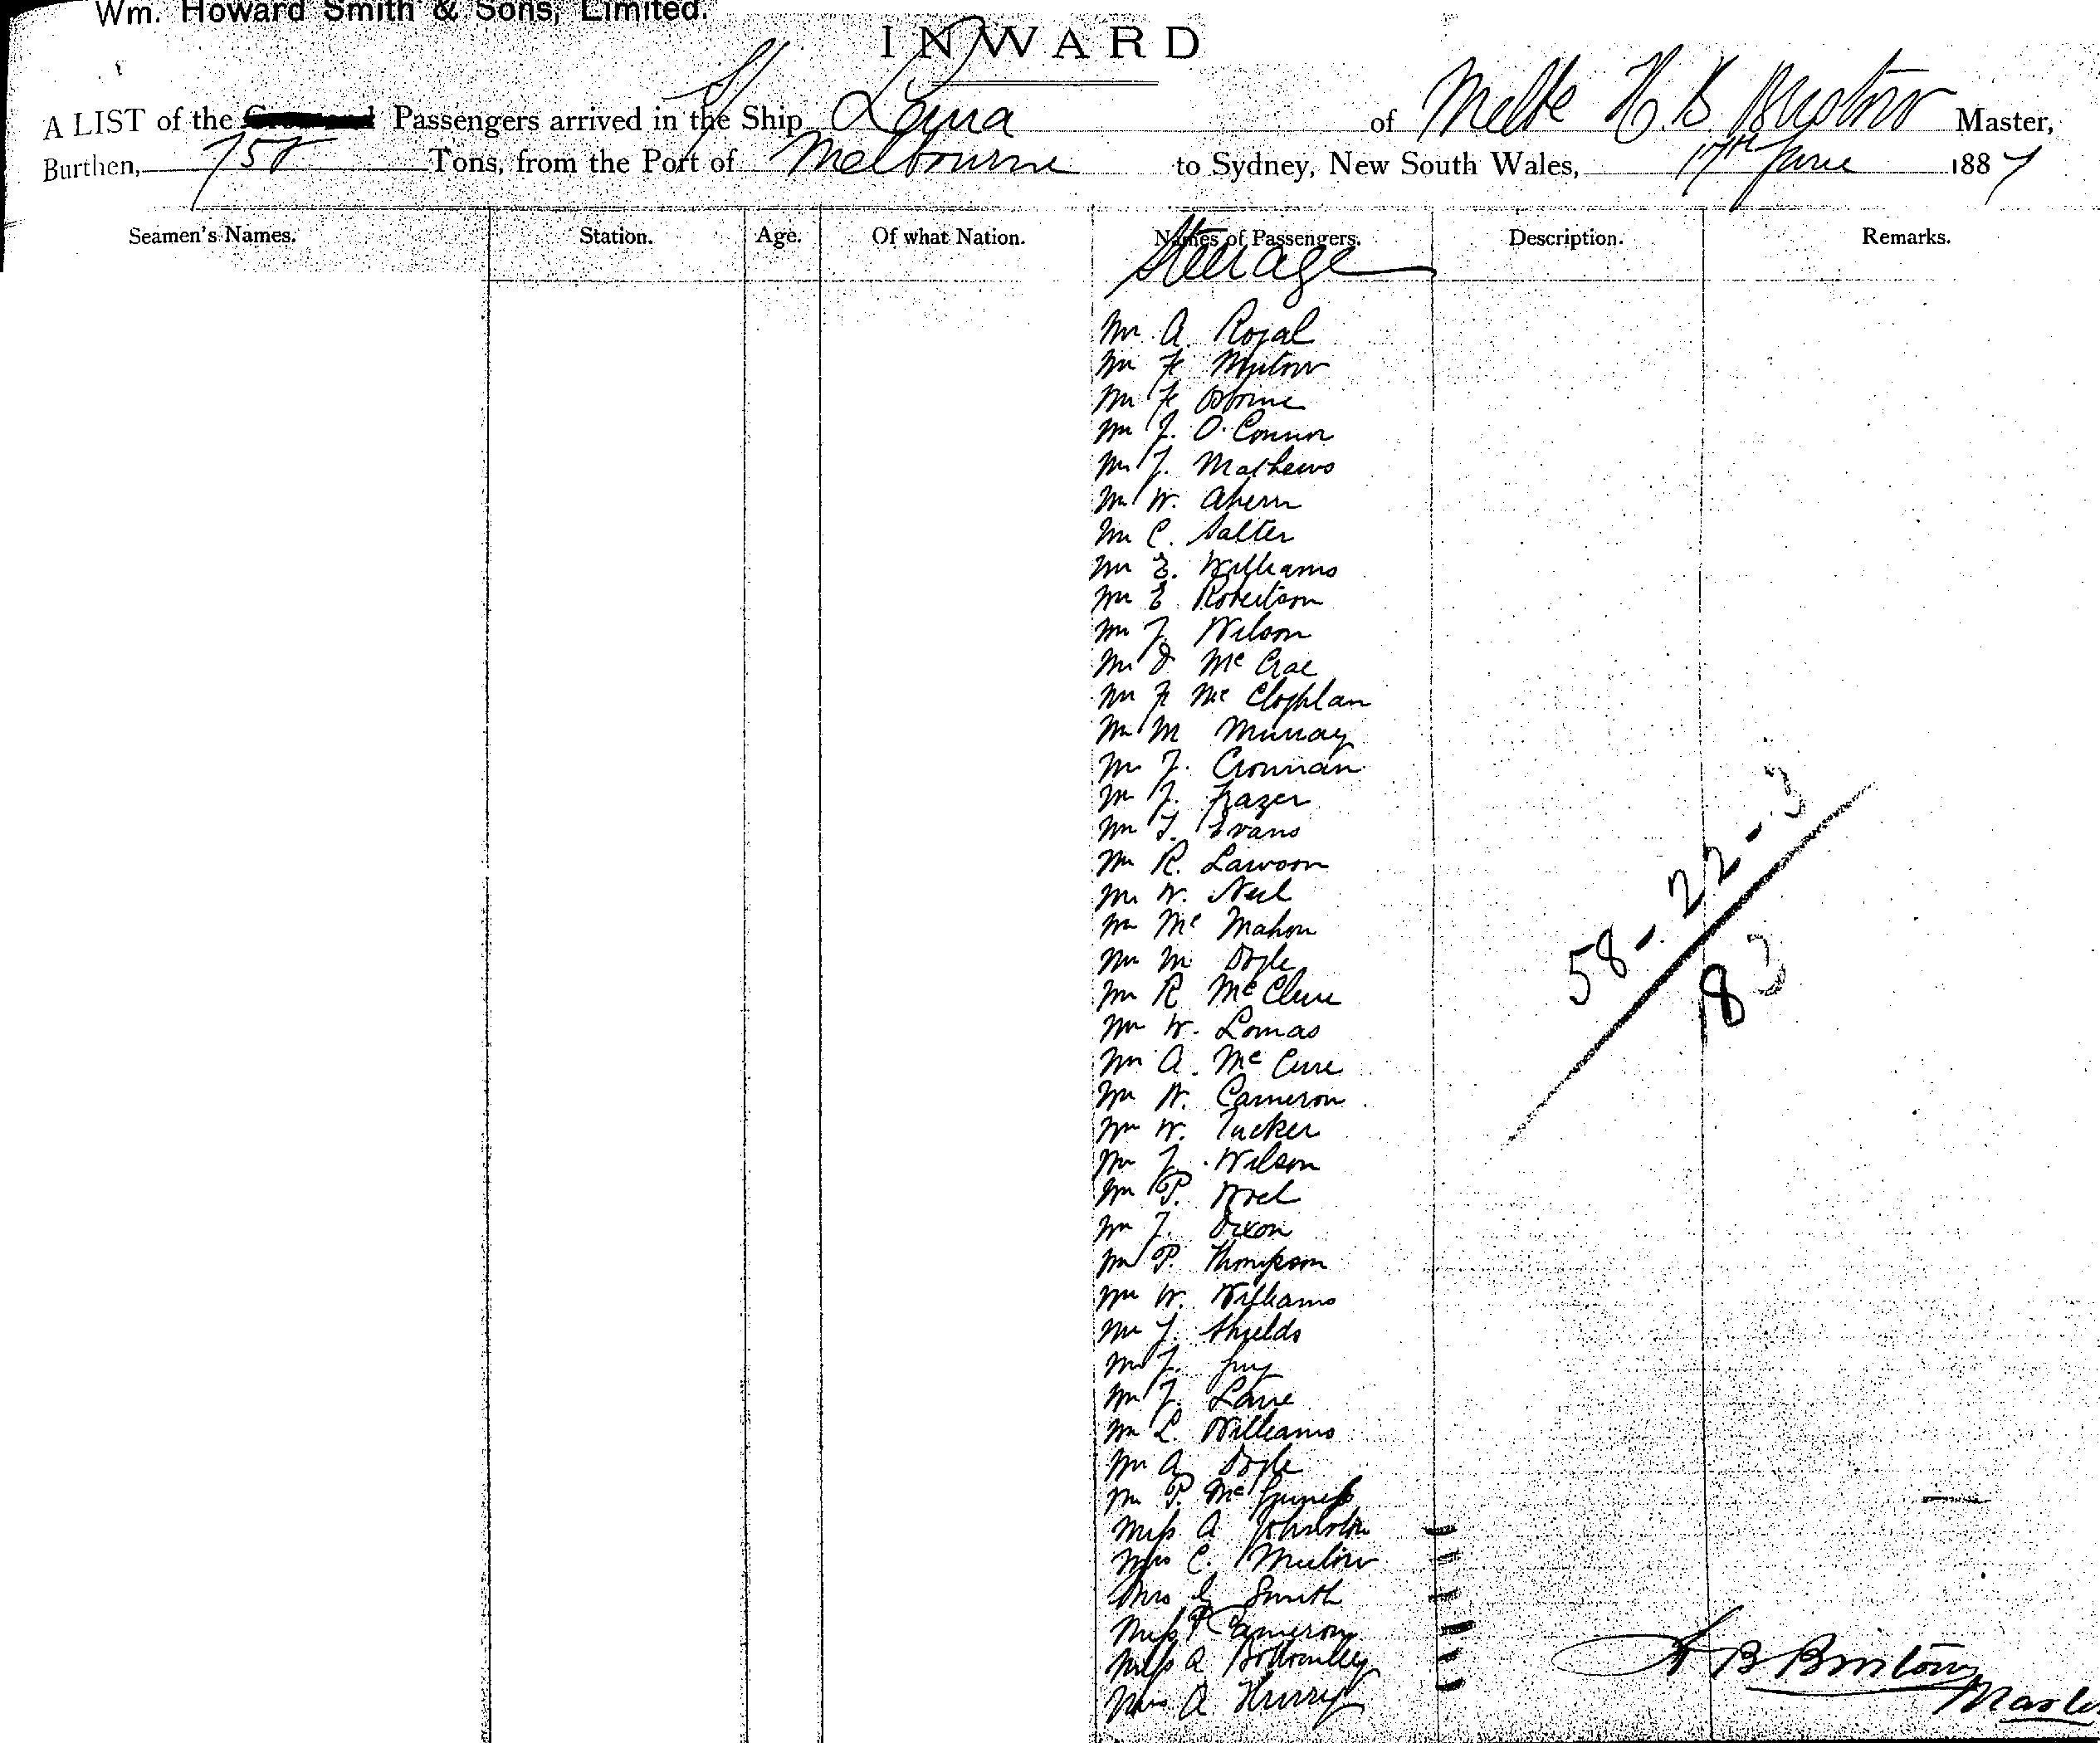 Wm. Howard Smith & Sons, Limited.
INWARD
A LIST of the Passengers arrived in the Ship S/S Leura of Melbe H. B. Burton Master,
Burthen, 758 Tons, from the Port of Melbourne to Sydney, New South Wales, 17th June 1887
Seamen's Names. Station. Age. Of what Nation. Names of Passengers. Description. Remarks.
Steerage
Mr A. Royal
Mr F
Mr F Osborne
Mr J. O'Connor
Mr J. Mathews
Mr W. Ahern
Mr C. Salter
Mr E. Williams
Mr E Robertson
Mr J. Wilson
Mr D McCrae
Mr F McCloghlan
Mr M Murray
Mr J. Cronnan
Mr J. Frazer
Mr T. Evans
Mr R. Lawson
Mr W. Neil
Mr McMahon
Mr M Doyle
Mr R McClure
Mr W. Lomas
Mr A. McCure
Mr W. Cameron
Mr W. Tucker
Mr J. Wilson
Mr P. Noel
Mr J. Dixon
Mr P. Thompson
Mr W. Williams
Mr J. Shields
Mr J. Guy
Mr J. Lane
Mr L. Williams
Mr A Doyle
Mr P. McGuness
Miss A Johnston
Mrs C.
Mrs Smith
Miss Cameron
Miss A Bottomley
Mrs A
58 - 22 - 3
83
H B Burton
Master